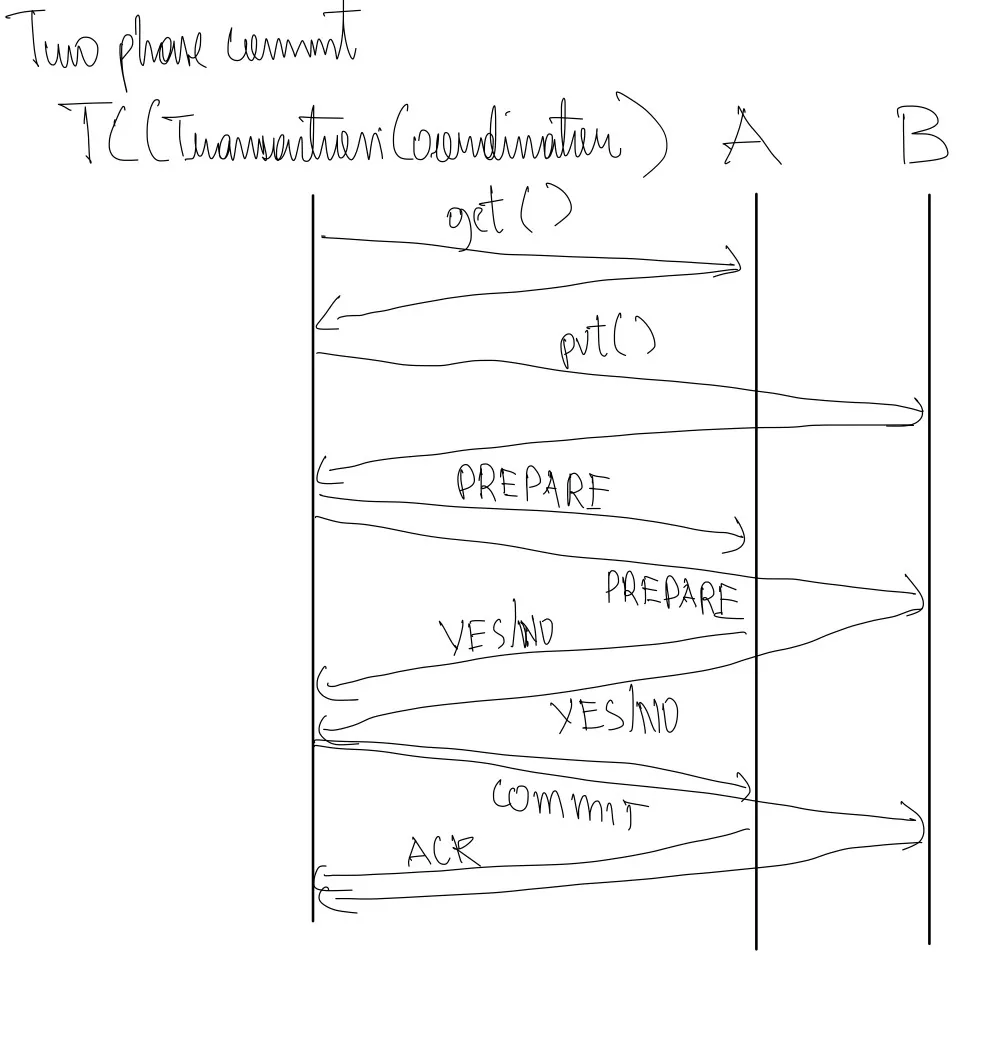 Two phase commit
TC (Transaction Coordinator) A B
get ( )
put ( )
PREPARE
PREPARE
YES/NO
YES/NO
COMMIT
ACK